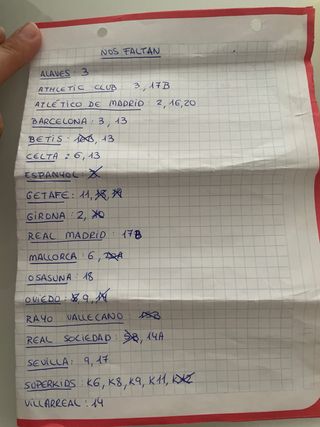 NOS FALTAN
ALAVES: 3
ATHLETIC CLUB 3, 17B
ATLÉTICO DE MADRID 2, 16, 20
BARCELONA: 3, 13
BETIS: 13
CELTA: 6, 13
ESPANYOL:
GETAFE: 11,
GIRONA: 2,
REAL MADRID: 17B
MALLORCA: 6,
OSASUNA: 18
OVIEDO: 9,
RAYO VALLECANO
REAL SOCIEDAD: 14A
SEVILLA: 9, 17
SUPERKIDS: K6, K8, K9, K11,
VILLARREAL: 14